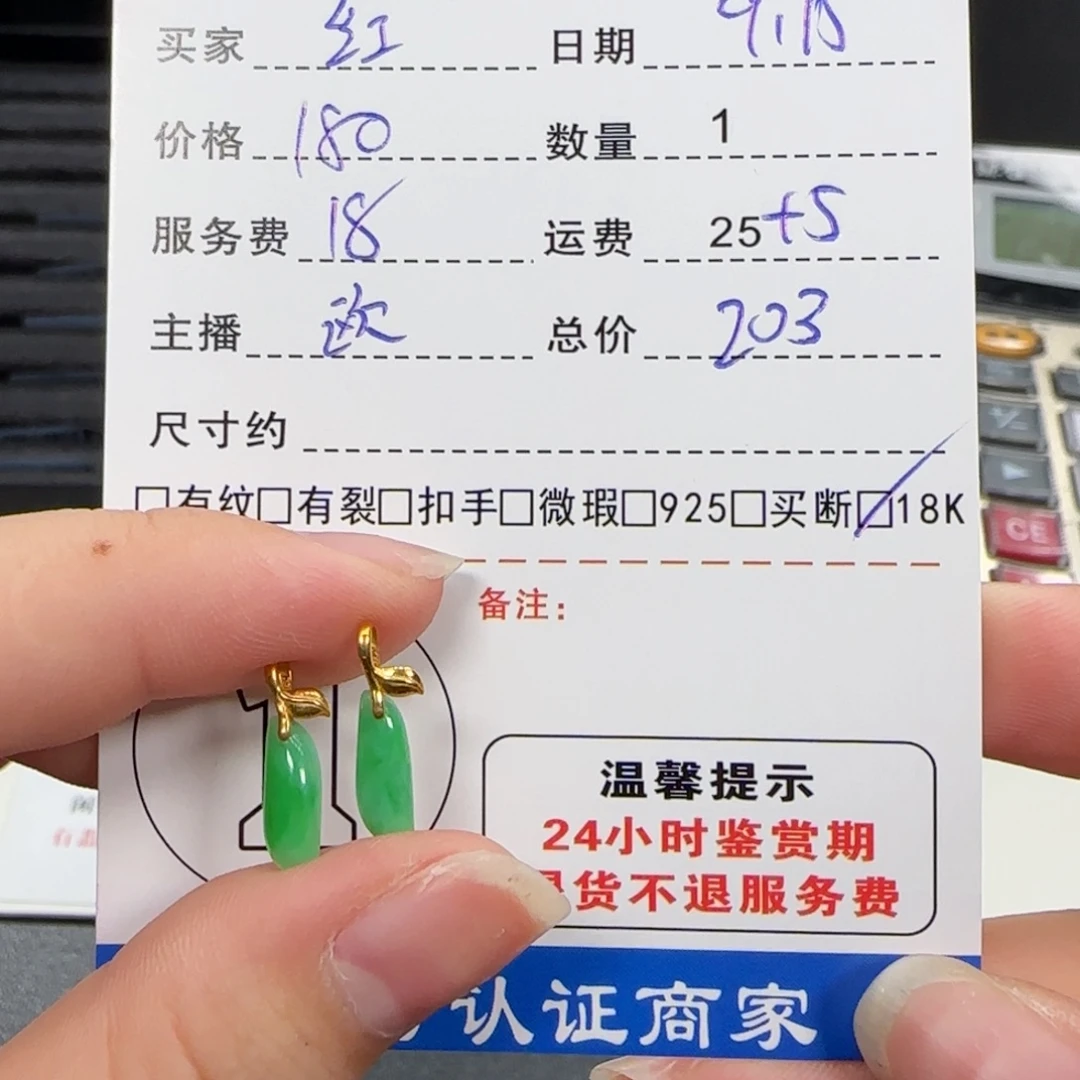 买家 红 日期
价格 180 数量 1
服务费 18 运费 25+5
主播 欧 总价 203
尺寸约
□有纹□有裂□扣手□微瑕□925□买断□18K
备注：
温馨提示
24小时鉴赏期
退货不退服务费
认证商家
CE